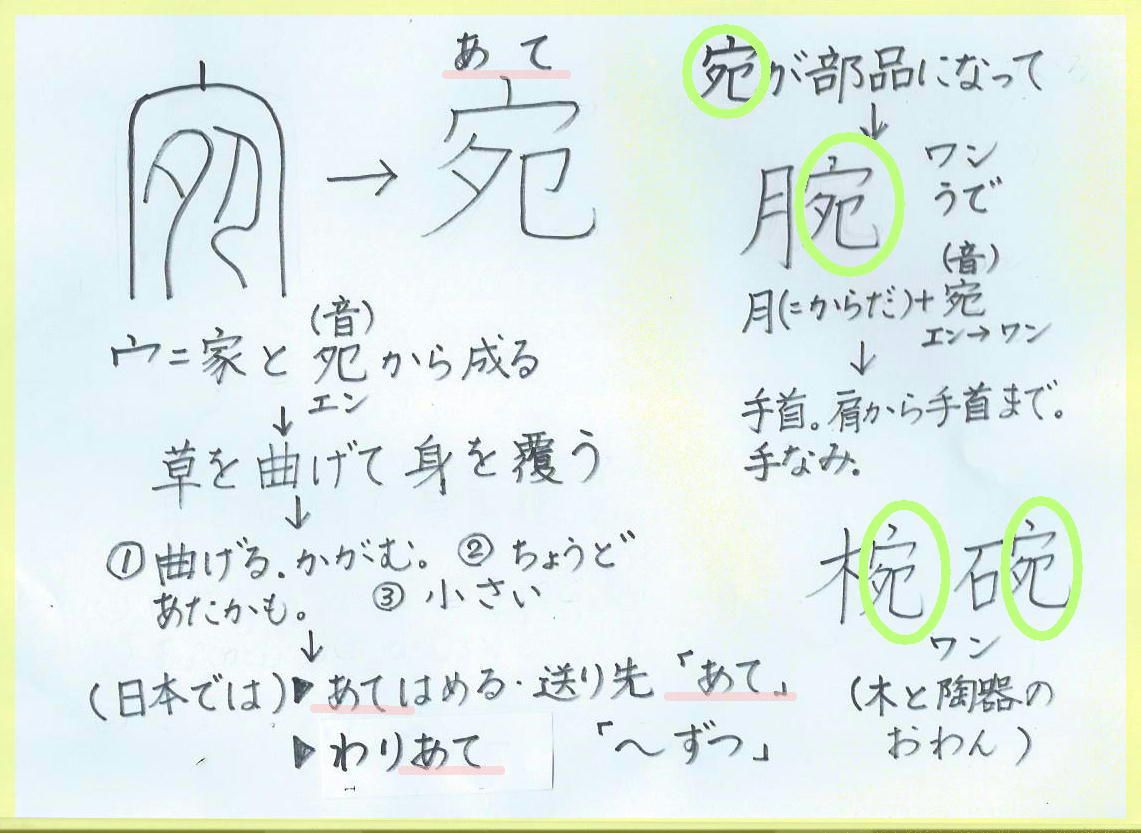 あて
→ 宛
(音)
宀=家と夗から成る
エン
↓
草を曲げて身を覆う
↓
①曲げる.かがむ。②ちょうど
あたかも。③小さい
↓
(日本では)▶あてはめる・送り先「あて」
▶わりあて 「～ずつ」
宛が部品になって
↓
腕 ワン
うで
(音)
月(=からだ)+宛
エン→ワン
↓
手首。肩から手首まで。
手なみ.
椀 碗
ワン
(木と陶器の
おわん)